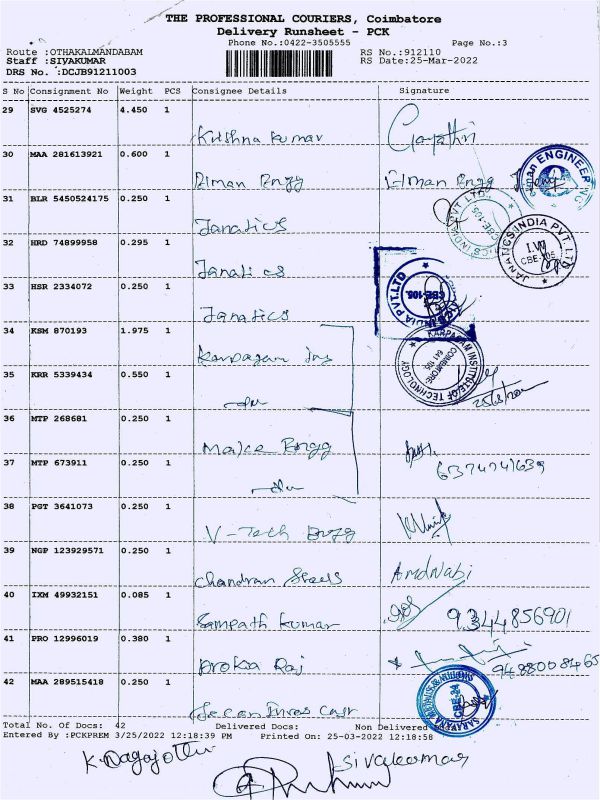 THE PROFESSIONAL COURIERS, Coimbatore
Delivery Runsheet - PCK
Phone No.:0422-3505555 Page No.:3
Route :OTHAKALMANDABAM RS No.:912110
Staff :SIVAKUMAR RS Date:25-Mar-2022
DRS No. :DCJB91211003
S No Consignment No Weight PCS Consignee Details Signature
29 SVG 4525274 4.450 1
Krishna Kumar Gayathri
30 MAA 281613921 0.600 1
Elman Engg Elman Engg
31 BLR 5450524175 0.250 1
Janatics
32 HRD 74899958 0.295 1
Janatics
JANATICS INDIA PVT. LTD
CBE-105
33 HSR 2334072 0.250 1
Janatics
34 KSM 870193 1.975 1
Karpagam Ins
KARPAGAM INSTITUTE OF TECHNOLOGY
COIMBATORE
641 105
35 KRR 5339434 0.550 1
36 MTP 268681 0.250 1
Engg
37 MTP 673911 0.250 1
6374741639
38 PGT 3641073 0.250 1
V-Tech Engg
39 NGP 123929571 0.250 1
Chandran Steels
40 IXM 49932151 0.085 1
Sampath Kumar 9344856901
41 PRO 12996019 0.380 1
Raj 9488008465
42 MAA 289515418 0.250 1
Total No. Of Docs: 42 Delivered Docs: Non Delivered
Entered By :PCKPREM 3/25/2022 12:18:39 PM Printed On: 25-03-2022 12:18:58
Sivakumar